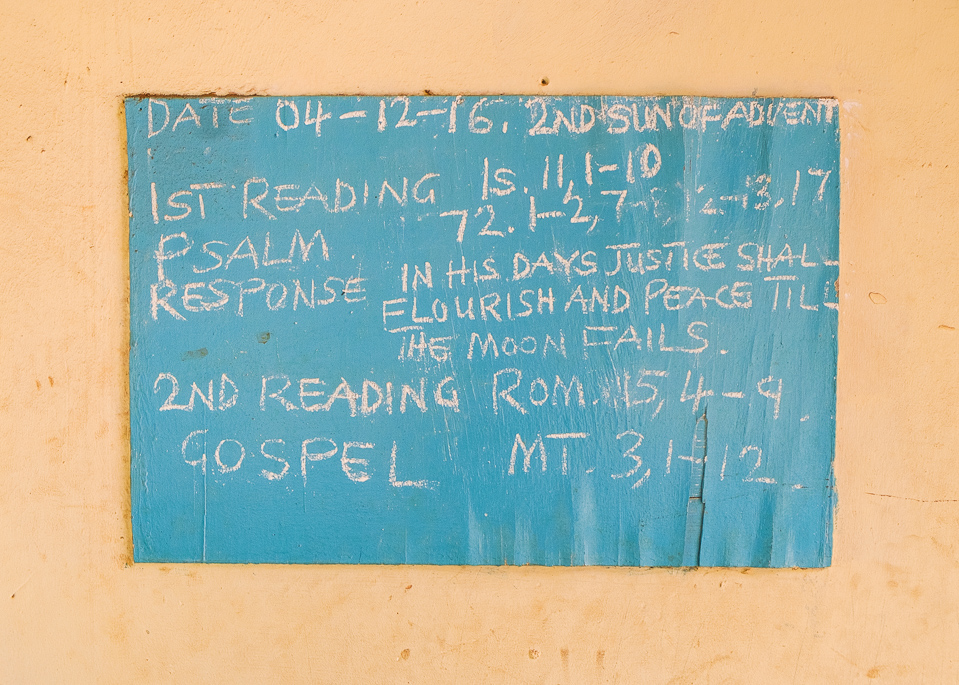 DATE 04-12-16. 2ND SUN OF ADVENT
1ST READING Is. 11,1-10
PSALM 72. 1-2, 7-8, 12-13, 17
RESPONSE IN HIS DAYS JUSTICE SHALL
FLOURISH AND PEACE TILL
THE MOON FAILS.
2ND READING ROM. 15,4-9.
GOSPEL MT. 3,1-12.